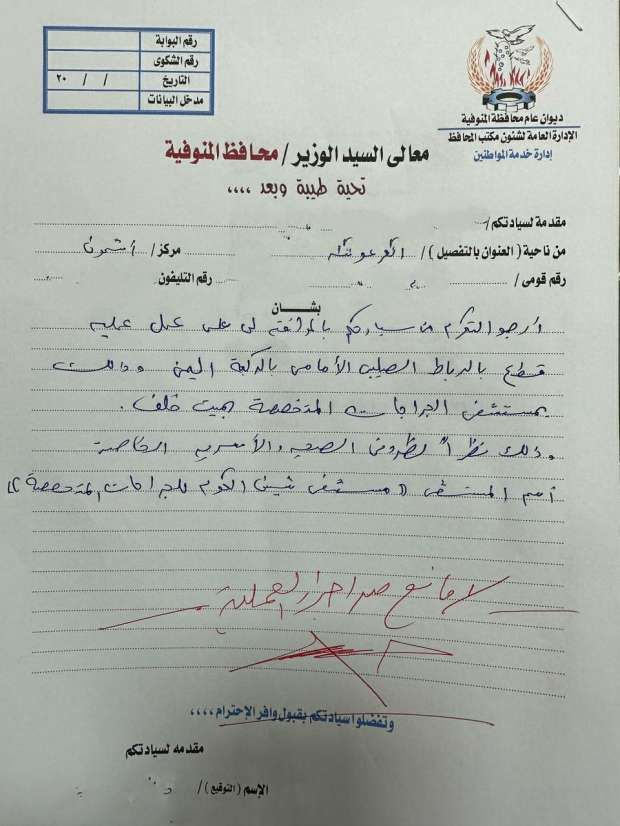 رقم البوابة
رقم الشكوى
التاريخ / / ٢٠
مدخل البيانات
ديوان عام محافظة المنوفية
الإدارة العامة لشئون مكتب المحافظ
إدارة خدمة المواطنين
معالى السيد الوزير / محافظ المنوفية
تحية طيبة وبعد ،،،،
مقدمة لسيادتكم /
من ناحية ( العنوان بالتفصيل ) / مركز / أشمون
رقم قومى / رقم التليفون
بشأن
أرجو التكرم من سيادتكم بالموافقة لى على عمل عملية
قطع بالرباط الصليبى الأمامى بالركبة اليمنى وذلك
بمستشفى الجراحات المتخصصة بميت خلف .
وذلك نظراً لظروفى الصحية والأسرية الخاصة
اسم المستشفى (( مستشفى شبين الكوم للجراحات المتخصصة ))
لا مانع من اجراء العملية
وتفضلوا سيادتكم بقبول وافر الإحترام ،،،،
مقدمه لسيادتكم
الإسم ( التوقيع ) /